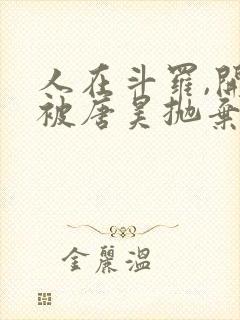 人在斗羅,開
被唐昊抛棄
金麗溫